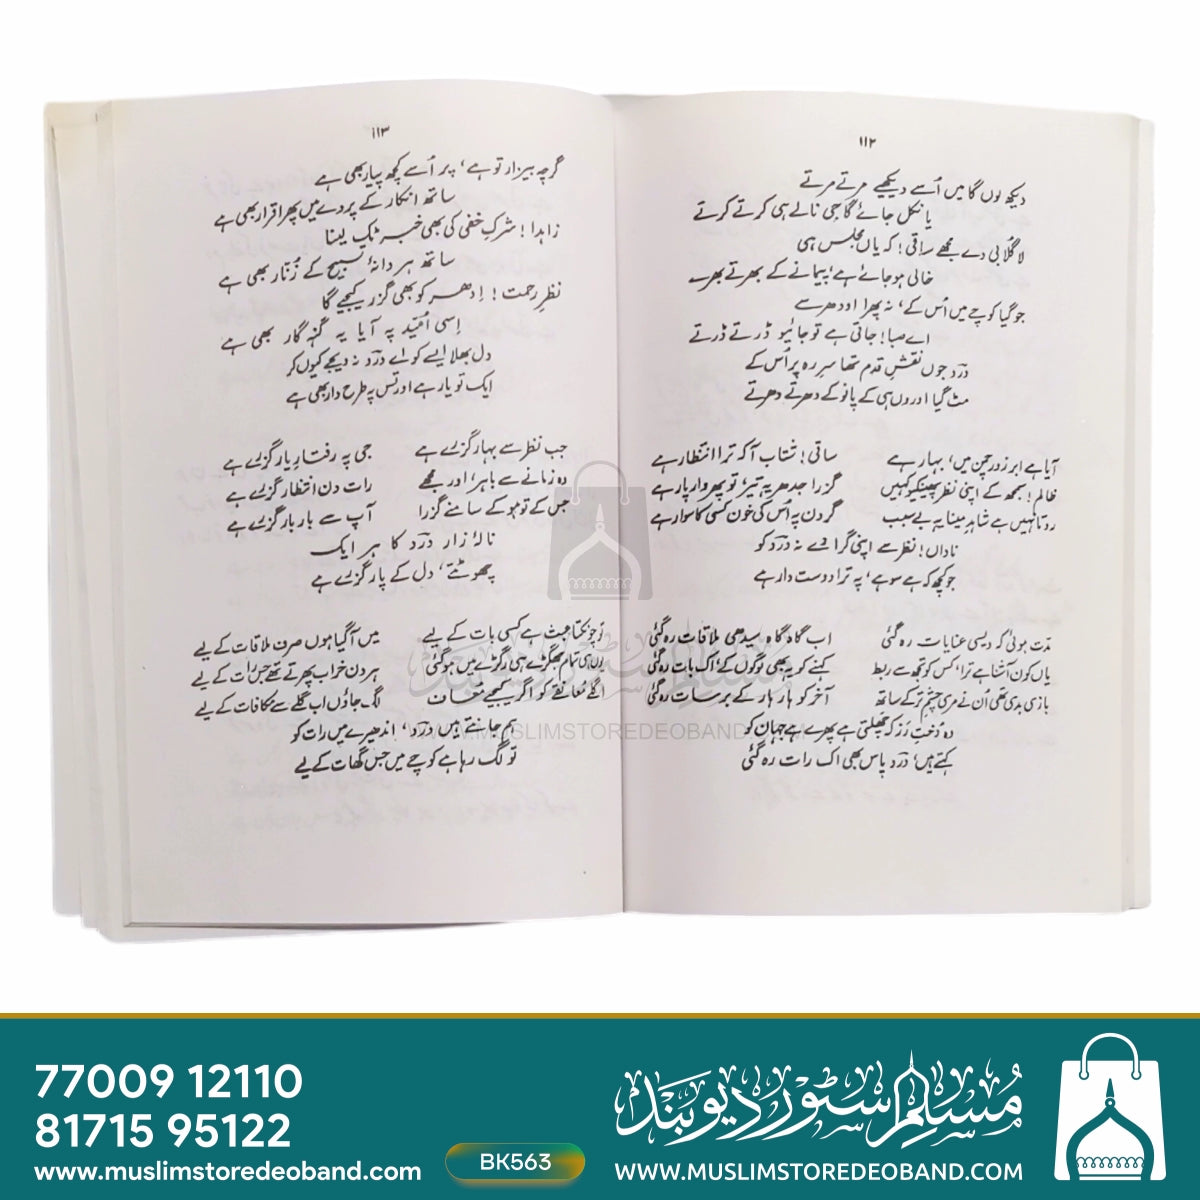 ۱۱۲
دیکھ لوں گا میں اُسے دیکھیے مرتے مرتے
یا نکل جائے گا جی نالے ہی کرتے کرتے
لا گلابی دے مجھے ساقی! کہ یاں مجلس ہی
خالی ہو جائے ہے، پیمانے کے بھرتے بھرتے
جو گیا کوچے میں اُس کے، نہ پھرا اودھر سے
اے صبا! جاتی ہے تو جائیو ڈرتے ڈرتے
درد جوں نقشِ قدم تھا سرِ رہ پر اُس کے
مٹ گیا اوروں ہی کے پانو کے دھرتے دھرتے
آیا ہے ابر زور چمن میں، بہار ہے ساقی! شتاب آ کہ ترا انتظار ہے
ظالم! سمجھ کے اپنی نظر پھینکیو کہیں گزرا جدھر یہ تیر تو پھر وار پار ہے
روتا نہیں ہے شاہدِ مینا یہ بے سبب گردن پہ اُس کی خون کسی کا سوار ہے
ناداں! نظر سے اپنی گرا دے نہ درد کو
جو کچھ کہ ہے سو ہے، پہ ترا دوست دار ہے
مدت ہوئی کہ ویسی عنایات رہ گئی اب گاہ گاہ سیدھی ملاقات رہ گئی
یاں کون آشنا ہے ترا، کس کو تجھ سے ربط کہنے کو یہ بھی لوگوں کے اک بات رہ گئی
بازی بدی تھی اُن نے مری چشمِ تر کے ساتھ آخر کو ہار ہار کے برسات رہ گئی
وہ دُختِ رز کہ چھلتی ہے پھرے ہے جہان کو
کہتے ہیں، درد پاس بھی اک رات رہ گئی
۱۱۳
گرچہ بیزار تو ہے، پر اُسے کچھ پیار بھی ہے
ساتھ انکار کے پردے میں پھر اقرار بھی ہے
زاہدا! شرکِ خفی کی بھی خبر ٹک لینا
ساتھ ہر دانۂ تسبیح کے زُنّار بھی ہے
نظرِ رحمت! اِدھر کو بھی گزر کیجیے گا
اِسی اُمّید پہ آیا یہ گنہ گار بھی ہے
دل بھلا ایسے کو اے درد نہ دیجے کیوں کر
ایک تو یار ہے اور تس پہ طرح دار بھی ہے
جب نظر سے بہار گزرے ہے جی پہ رفتارِ یار گزرے ہے
وہ زمانے سے باہر، اور مجھے رات دن انتظار گزرے ہے
جس کے تو ہو کے سامنے گزرا آپ سے بار بار گزرے ہے
نالۂ زارِ درد کا ہر ایک
چھوٹتے، دل کے پار گزرے ہے
تو چونکتا عبث ہے کسی بات کے لیے میں آ گیا ہوں صرف ملاقات کے لیے
یوں ہی تمام جھگڑے ہی رگڑے میں ہو گئی ہر دن خراب پھرتے تھے جس رات کے لیے
اگلے مُعانقے کو اگر کیجیے معاف لگ جاؤں اب گلے سے مکافات کے لیے
ہم جانتے ہیں درد، اندھیرے میں رات کو
تو لگ رہا ہے کوچے میں جس گھات کے لیے
WWW.MUSLIMSTOREDEOBAND.COM
77009 12110
81715 95122
www.muslimstoredeoband.com
BK563
مسلم سٹور دیوبند
WWW.MUSLIMSTOREDEOBAND.COM